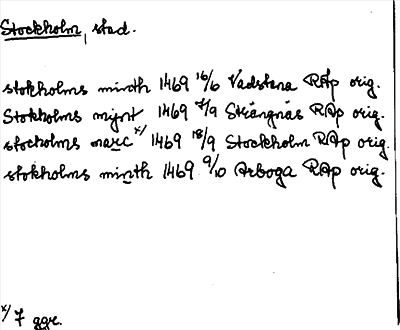 Stockholm, stad.
stokholms minth 1469 16/6 Vadstena RAp orig.
Stokholms mynt 1469 7/9 Strängnäs RAp orig.
stocholms marc x/ 1469 18/9 Stockholm RAp orig.
stokholms minth 1469 9/10 Arboga RAp orig.
x/ 7 ggr.